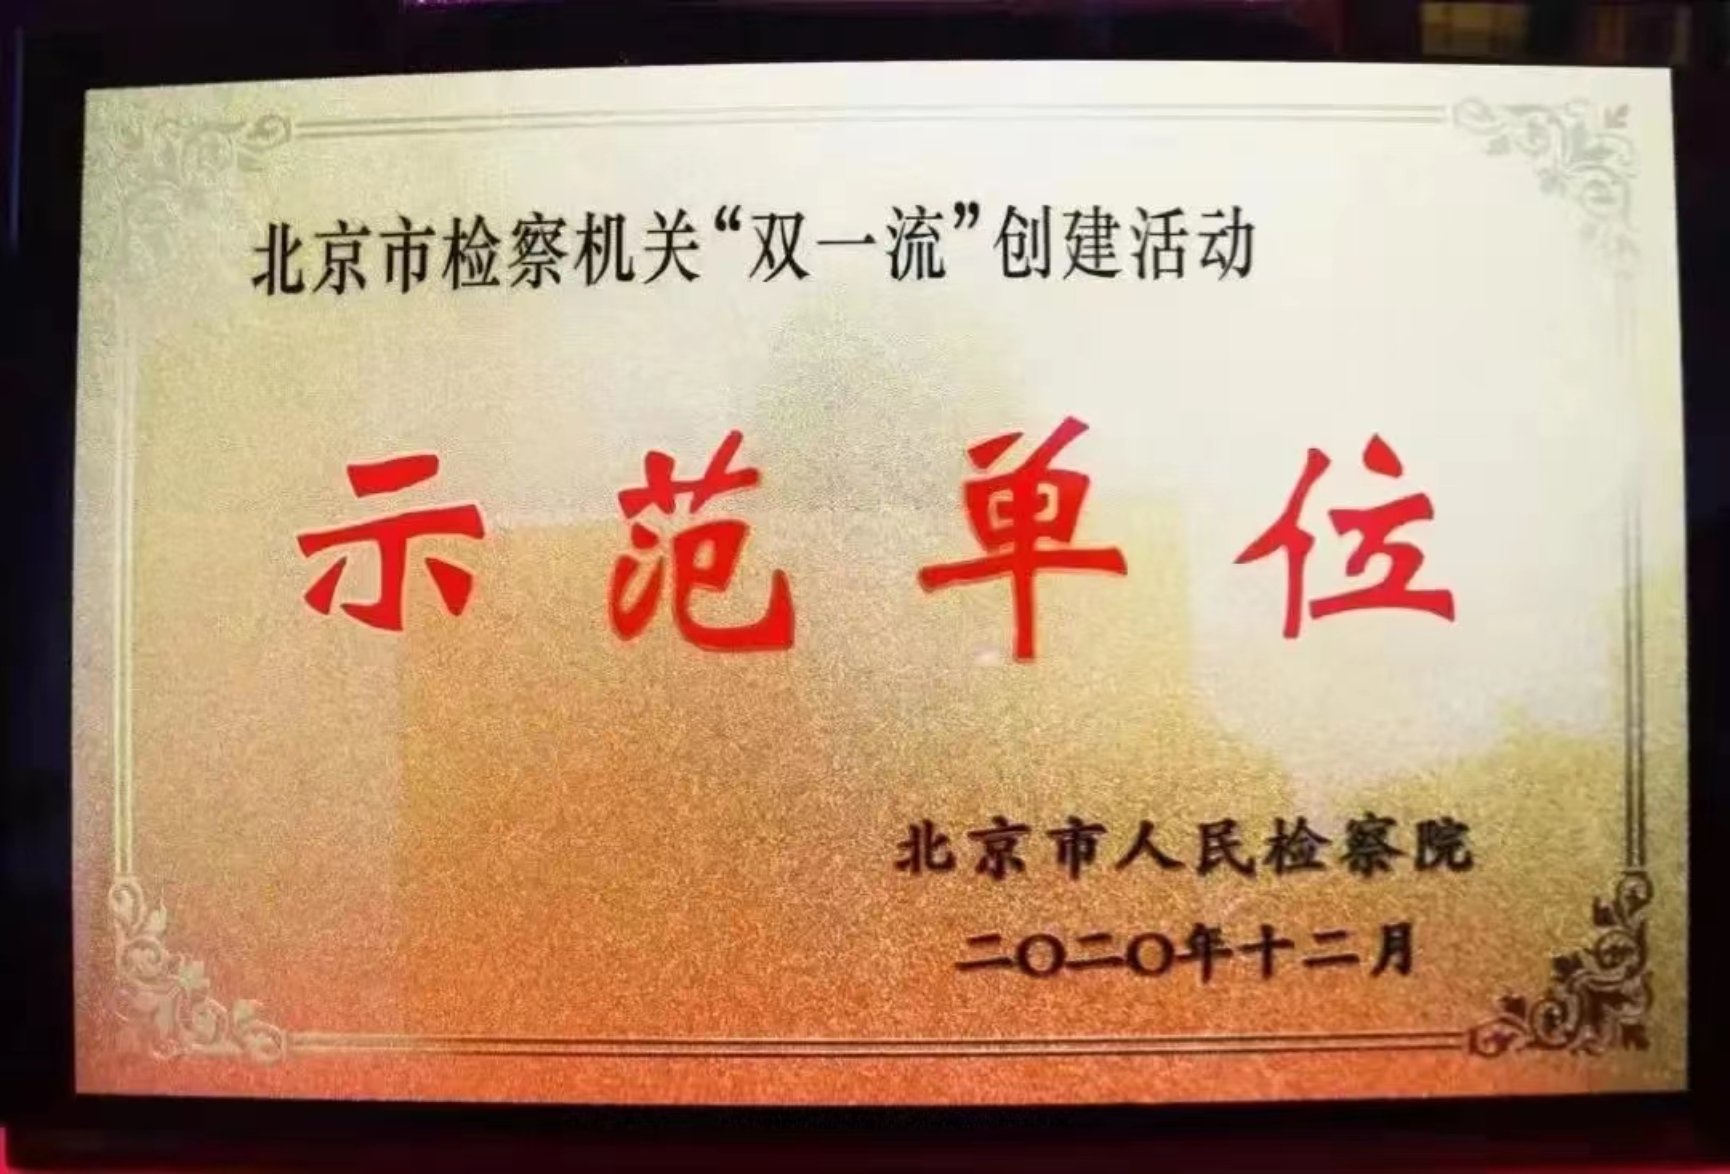 北京市检察机关“双一流”创建活动
示范单位
北京市人民检察院
二〇二〇年十二月